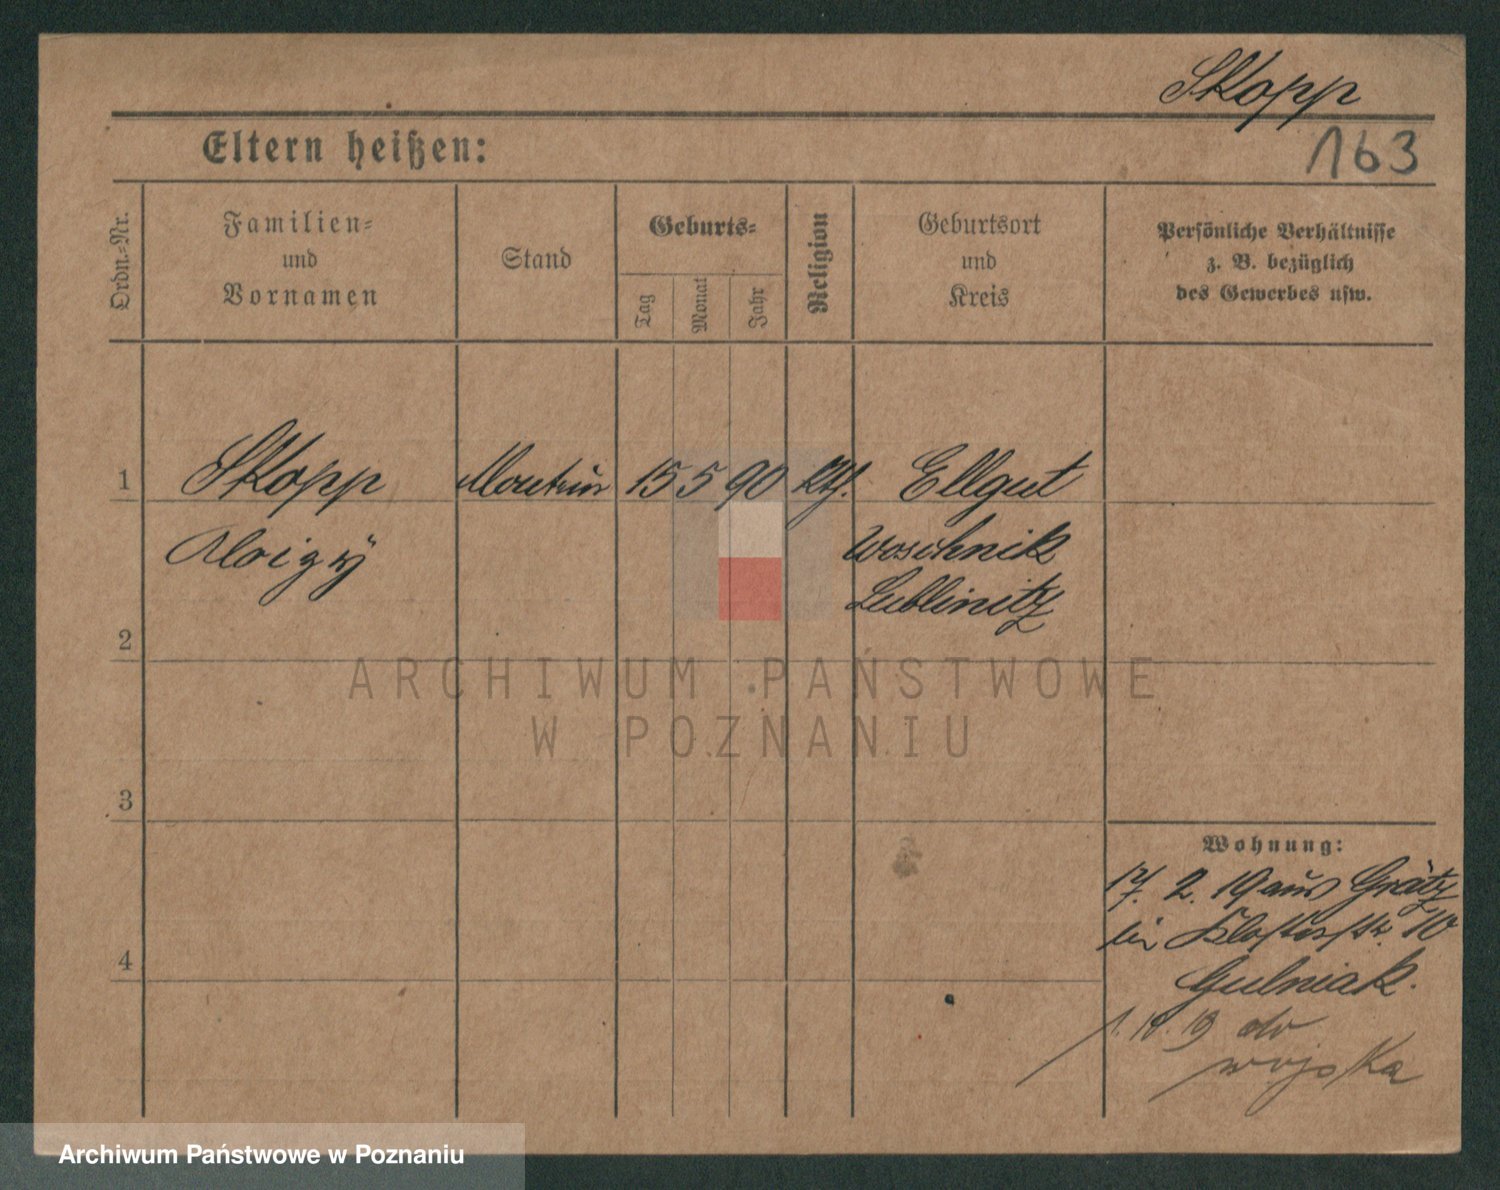 Skopp
163
Eltern heißen:
Ordn.-Nr.
Familien-
und
Vornamen
Stand
Geburts-
Tag
Monat
Jahr
Religion
Geburtsort
und
Kreis
Persönliche Verhältnisse
z. B. bezüglich
des Gewerbes usw.
1 Skopp 15 5 90 kth. Ellgut
Woschnik
Lublinitz
2
ARCHIWUM PAŃSTWOWE
W POZNANIU
3
Wohnung:
17. 2. 19 aus Grätz
bei Klosterstr. 10
Gulniak.
4
1. 10. 19 do
wojska
Archiwum Państwowe w Poznaniu